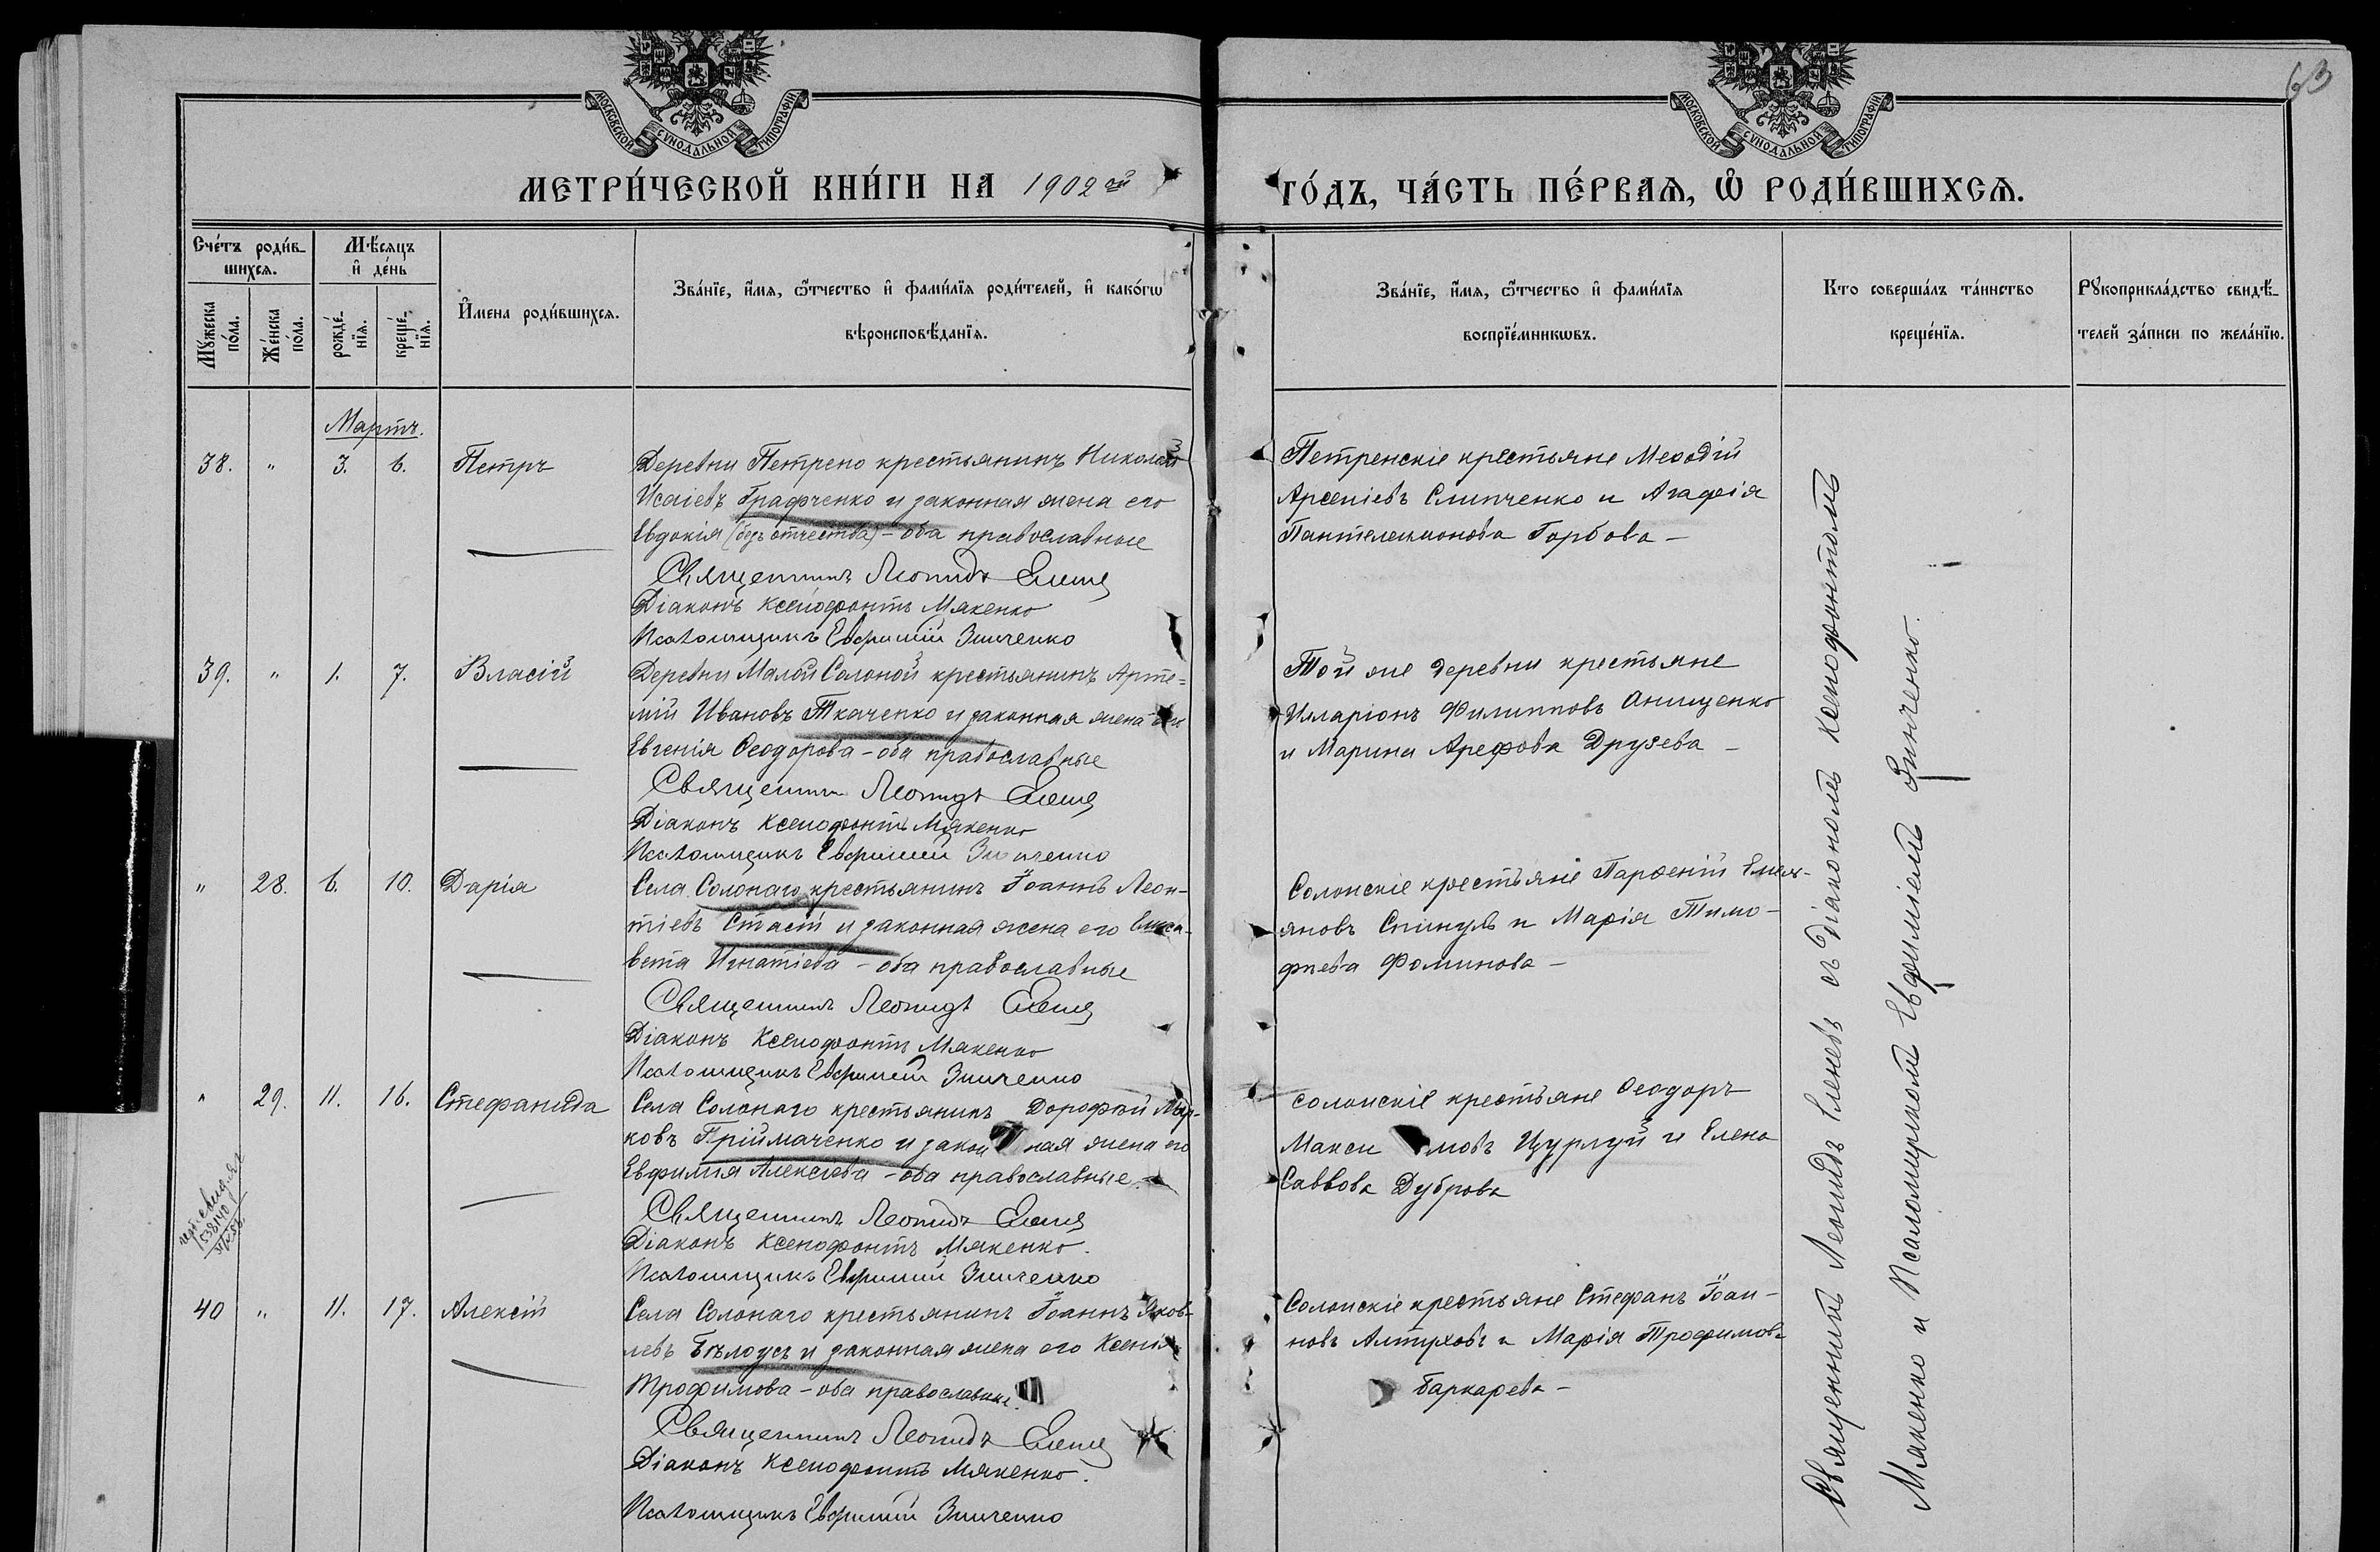 63
МОСКОВСКОЙ СУНОДАЛЬНОЙ ТИПОГРАФІИ
МОСКОВСКОЙ СУНОДАЛЬНОЙ ТИПОГРАФІИ
МЕТРИ́ЧЕСКОЙ КНИ́ГИ НА 1902 й
ГО́ДЪ, ЧА́СТЬ ПЕ́РВАЯ, Ѡ҆ РОДИ́ВШИХСЯ.
Сче́тъ роди́в-
шихся.
Мѣ́сяцъ
и҆ де́нь
Му́жеска по́ла.
Же́нска по́ла.
рожде́-нїя.
креще́-нїя.
И҆мена роди́вшихся.
Зва́нїе, и҆́мя, ѻ҆́тчество и҆ фами́лїя роди́телей, и҆ како́гѡ
вѣроисповѣ́данїя.
Зва́нїе, и҆́мя, ѻ҆́тчество и҆ фами́лїя
воспрїе́мникѡвъ.
Кто соверша́лъ та́инство
креще́нїя.
Рꙋкоприкла́дство свидѣ́-
телей за́писи по жела́нїю.
Мартъ.
38. " 3. 6. Петръ
Деревни Петрено крестьянинъ Николай
Исаіевъ Графченко и законная жена его
Евдокія (безъ отчества) – оба православные
Священникъ Леонидъ
Діаконъ Ксенофонтъ Мякенко
Псаломщикъ Евфимій Зинченко
Петренскіе крестьяне Меѳодій
Арсеніевъ Слипченко и Агафія
Пантелеимонова Горбова –
39. " 1. 7. Власій
Деревни Малой Солоной крестьянинъ Арте=
мій Ивановъ Ткаченко и законная жена его
Евгенія Ѳеодорова – оба православные
Священникъ Леонидъ
Діаконъ Ксенофонтъ Мякенко
Псаломщикъ Евфимій Зинченко
Той же деревни крестьяне
Илларіонъ Филипповъ Онищенко
и Марина Арефова Друзева –
" 28. 6. 10. Дарія
Села Солонаго крестьянинъ Іоаннъ Леон-
тіевъ Стасій и законная жена его Елиса-
вета Игнатіева – оба православные
Священникъ Леонидъ
Діаконъ Ксенофонтъ Мякенко
Псаломщикъ Евфимій Зинченко
Солонскіе крестьяне Парѳеній Емель-
яновъ и Марія Тимо-
феева Фоминова –
" 29. 11. 16. Стефанида
Села Солонаго крестьянинъ Дорофей Мар-
ковъ Пріймаченко и законная жена его
Евфимія Алексіева – оба православные.
Священникъ Леонидъ
Діаконъ Ксенофонтъ Мякенко.
Псаломщикъ Евфимій Зинченко
Солонскіе крестьяне Ѳеодоръ
Максимовъ Цурлуй и Елена
Саввова Дуброва
40 " 11. 17. Алексій
Села Солонаго крестьянинъ Іоаннъ Яков-
левъ Бѣлоусъ и законная жена его Ксенія
Трофимова – оба православные.
Священникъ Леонидъ
Діаконъ Ксенофонтъ Мякенко.
Псаломщикъ Евфимій Зинченко
Солонскіе крестьяне Стефанъ Іоан-
новъ Алтуховъ и Марія Трофимова
Баркарева –
Священникъ Леонидъ Еленевъ съ Діакономъ Ксенофонтомъ
Мякенко и Псаломщикомъ Евфиміемъ Зинченко.